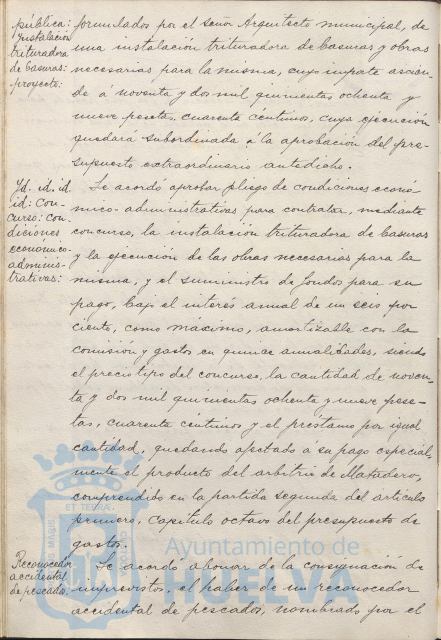 pública:
Ynstalación
trituradora
de basuras:
proyecto:
formulados por el señor Arquitecto municipal, de
una instalación trituradora de basuras y obras
necesarias para la misma, cuyo importe ascien-
de a noventa y dos mil quinientas ochenta y
nueve pesetas cuarenta céntimos, cuya ejecución
quedará subordinada á la aprobación del pre-
supuesto extraordinario antedicho.
Yd. id. id
id: Con-
curso: con
diciones
económico-
adminis-
trativas:
Se acordó aprobar pliego de condiciones econó-
mico-administrativas para contratar, mediante
concurso, la instalación trituradora de basuras
y la ejecución de las obras necesarias para la
misma, y el suministro de fondos para su
pago, bajo el interés anual de un seis por
ciento, como máximo, amortizable con la
comisión y gastos en quince anualidades, siendo
el precio tipo del concurso, la cantidad de noven-
ta y dos mil quinientas ochenta y nueve pese-
tas, cuarenta céntimos y el préstamo por igual
cantidad, quedando afectado á su pago especial-
mente el producto del arbitrio de Matadero,
comprendido en la partida segunda del artículo
primero, capítulo octavo del presupuesto de
gastos.
Reconocedor
accidental
de pescados:
Se acordó abonar de la consignación de
imprevistos, el haber de un reconocedor
accidental de pescados, nombrado por el
ET TERRA
Ayuntamiento de
HUELVA